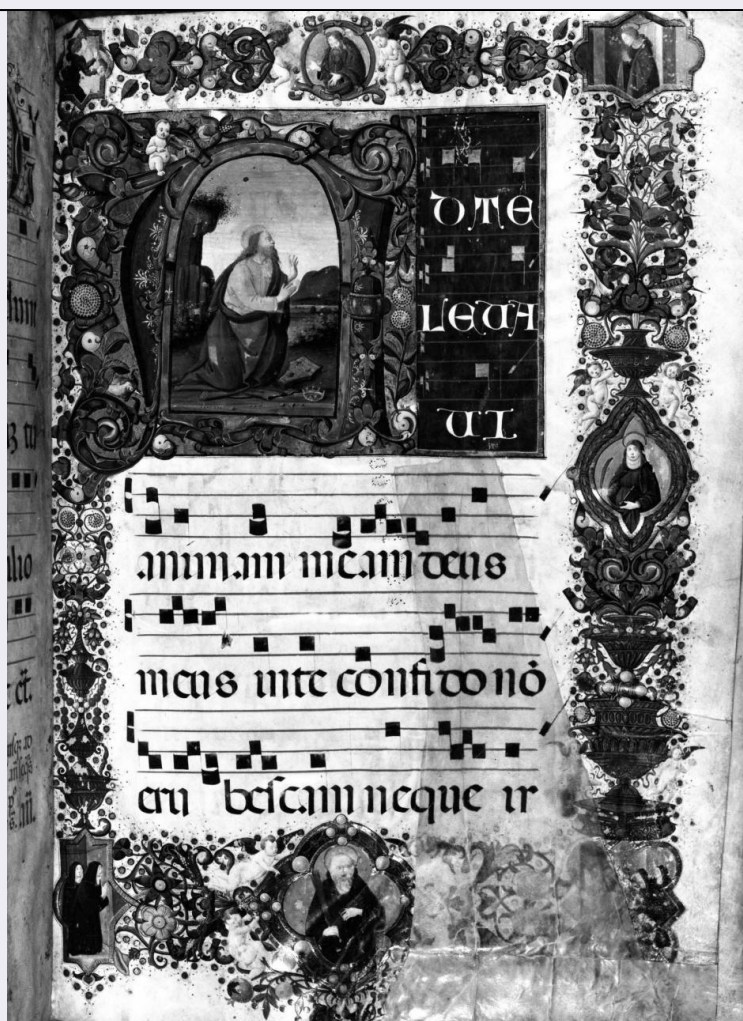 AD TE
LEUA
UI
animam meam deus
meus inte confido nō
eru bescam neque ir